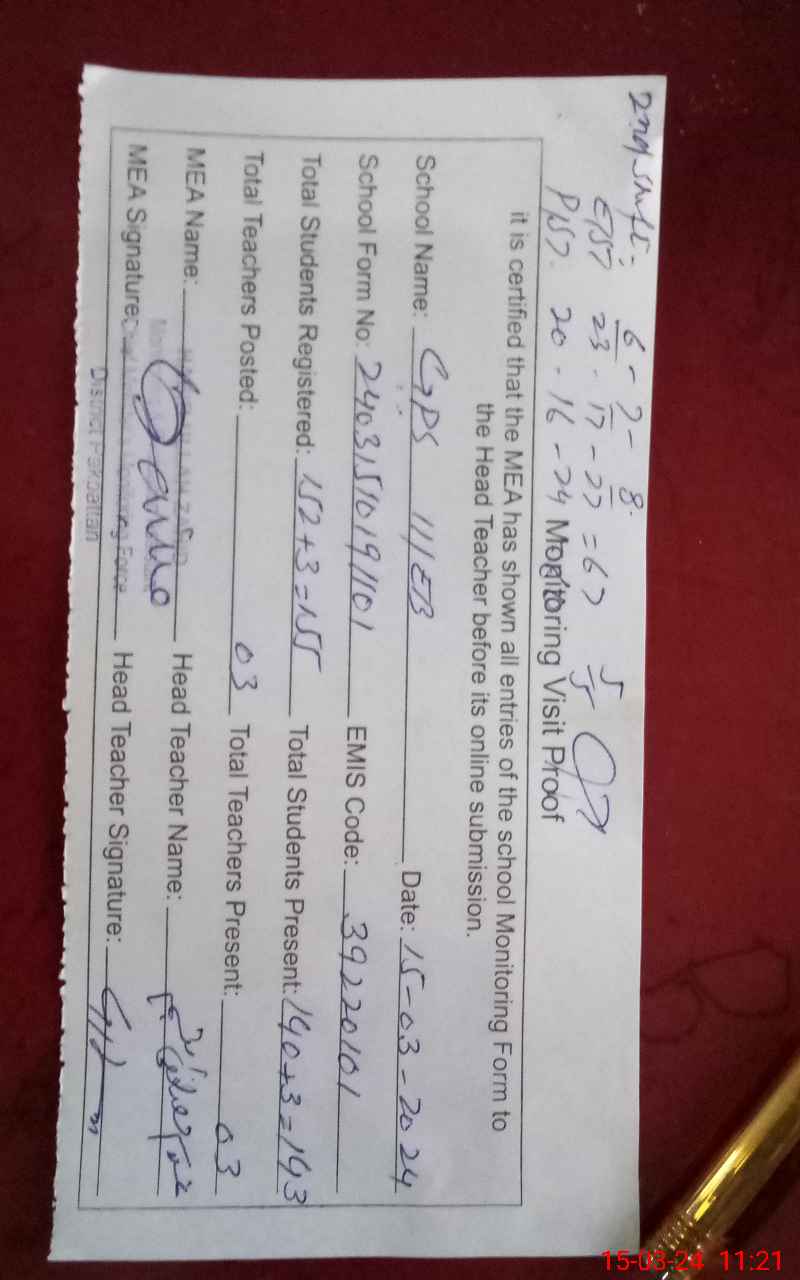 2nd Shift:
6 - 7 - 8
E/S7 23 - 17 - 27 = 67 5/5
P/S7. 20 - 16 - 24
Monitoring Visit Proof
it is certified that the MEA has shown all entries of the school Monitoring Form to
the Head Teacher before its online submission.
School Name: GPS 11/EB Date: 15-03-2024
School Form No: 24031510191101 EMIS Code: 39220101
Total Students Registered: 152+3=155 Total Students Present: 140+3=143
Total Teachers Posted: 03 Total Teachers Present: 03
MEA Name: Head Teacher Name:
MEA Signature: Head Teacher Signature:
Monitoring Force
District Pakpattan
15-03-24 11:21